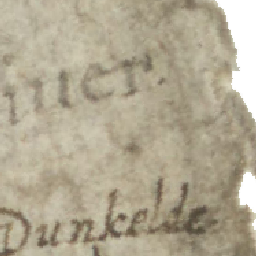 iuer.
Dunkelde.